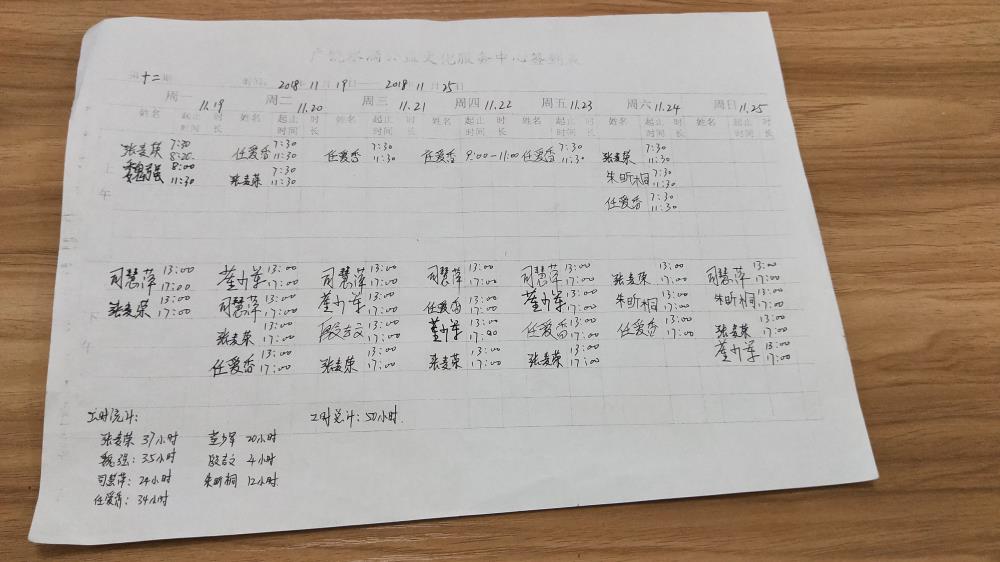 公益文化服务中心签到表
第十二期 时间：2018年11月19日——2018年11月25日
周一 11.19 周二 11.20 周三 11.21 周四 11.22 周五 11.23 周六 11.24 周日 11.25
姓名 起止时间 时长 姓名 起止时间 时长 姓名 起止时间 时长 姓名 起止时间 时长 姓名 起止时间 时长 姓名 起止时间 时长 姓名 起止时间 时长
上午
张麦荣 7:30 8:20 任爱香 7:30 11:30 任爱香 7:30 11:30 任爱香 9:00-11:00 任爱香 7:30 11:30 张麦荣 7:30 11:30
魏强 8:00 11:30 张麦荣 7:30 11:30 朱昕桐 7:30 11:30
任爱香 7:30 11:30
下午
司慧萍 13:00 17:00 董少军 13:00 17:00 司慧萍 13:00 17:00 司慧萍 13:00 17:00 司慧萍 13:00 17:00 张麦荣 13:00 17:00 司慧萍 13:00 17:00
张麦荣 13:00 17:00 司慧萍 13:00 17:00 董少军 13:00 17:00 任爱香 13:00 17:00 董少军 13:00 17:00 朱昕桐 13:00 17:00 朱昕桐 13:00 17:00
张麦荣 13:00 17:00 殷吉文 13:00 17:00 董少军 13:00 17:00 任爱香 13:00 17:00 任爱香 13:00 17:00 张麦荣 13:00 17:00
任爱香 13:00 17:00 张麦荣 13:00 17:00 张麦荣 13:00 17:00 张麦荣 13:00 17:00 董少军 13:00 17:00
工时统计： 工时总计：50小时.
张麦荣 37小时 董少军 20小时
魏强：3.5小时 殷吉文 4小时
司慧萍：24小时 朱昕桐 12小时
任爱香：34小时